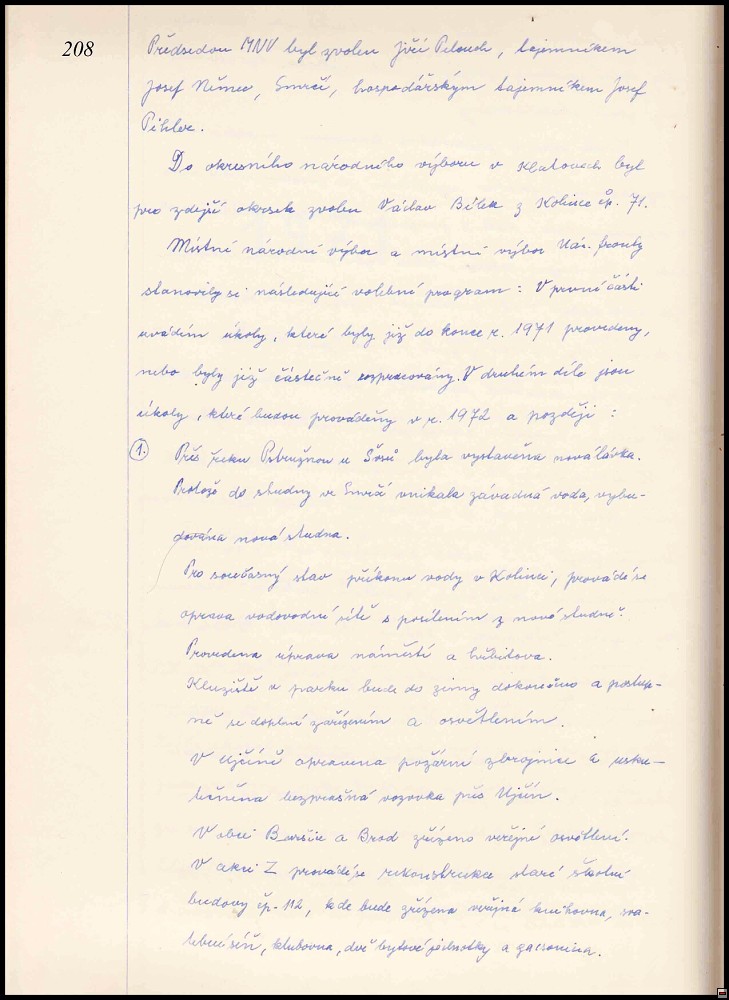 208
Předsedou MNV byl zvolen Jiří Pelouch, tajemníkem
Josef Němec, Smrčí, hospodářským tajemníkem Josef
Pihler.
Do okresního národního výboru v Klatovech byl
pro zdejší okrsek zvolen Václav Bělek z Kolince čp. 71.
Místní národní výbor a místní výbor Nár. fronty
stanovily si následující volební program: V první části
uvádím úkoly, které byly již do konce r. 1971 provedeny,
nebo byly již částečně rozpracovány. V druhém díle jsou
úkoly, které budou prováděny v r. 1972 a později:
1. Přes řeku Ostružnou u Šosů byla vystavěna nová lávka.
Protože do studny ve Smrčí vnikala závadná voda, vybu-
dována nová studna.
Pro současný stav příkonu vody v Kolinci, provádí se
oprava vodovodní sítě s posílením z nové studně.
Provedena úprava náměstí a hřbitova.
Kluziště v parku bude do zimy dokončeno a postup-
ně se doplní zařízením a osvětlením.
V Ujčíně opravena požární zbrojnice a usku-
tečněna bezprašná vozovka přes Ujčín.
V obci Boršice a Brod zřízeno veřejné osvětlení.
V akci Z provádí se rekonstrukce staré školní
budovy čp. 112, kde bude zřízena veřejná knihovna, sva-
tební síň, klubovna, dvě bytové jednotky a garsonina.